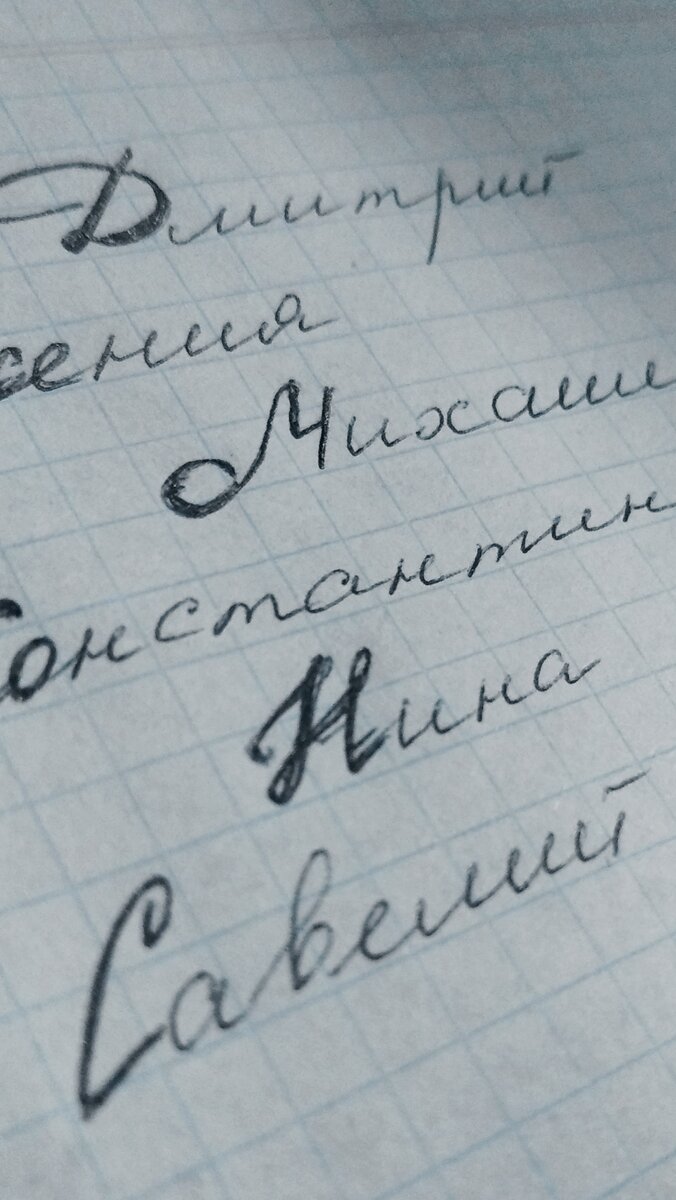 Дмитрий
сения
Михаи
Константин
Нина
Савелий